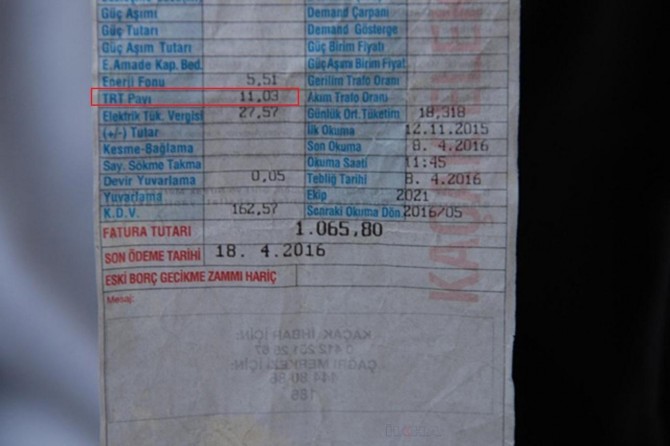 Güç Aşımı Demand Çarpanı
Güç Tutarı Demand Gösterge
Güç Aşım Tutarı Güç Birim Fiyatı
E.Amade Kap. Bed. Güç Aşımı Birim Fiyat
Enerji Fonu 5,51 Gerilim Trafo Oranı
TRT Payı 11,03 Akım Trafo Oranı
Elektrik Tük. Vergisi 27,57 Günlük Ort.Tüketim 18,318
(+/-) Tutar İlk Okuma 12.11.2015
Kesme-Bağlama Son Okuma 8. 4.2016
Say. Sökme Takma Okuma Saati 11:45
Devir Yuvarlama 0,05 Tebliğ Tarihi 8. 4.2016
Yuvarlama Ekip 2021
K.D.V. 162,57 Sonraki Okuma Dön 2016/05
FATURA TUTARI 1.065,80
SON ÖDEME TARİHİ 18. 4.2016
ESKİ BORÇ GECİKME ZAMMI HARİÇ
Mesaj:
KAÇAK İHBAR İÇİN:
ÇAĞRI MERKEZİ İÇİN:
186